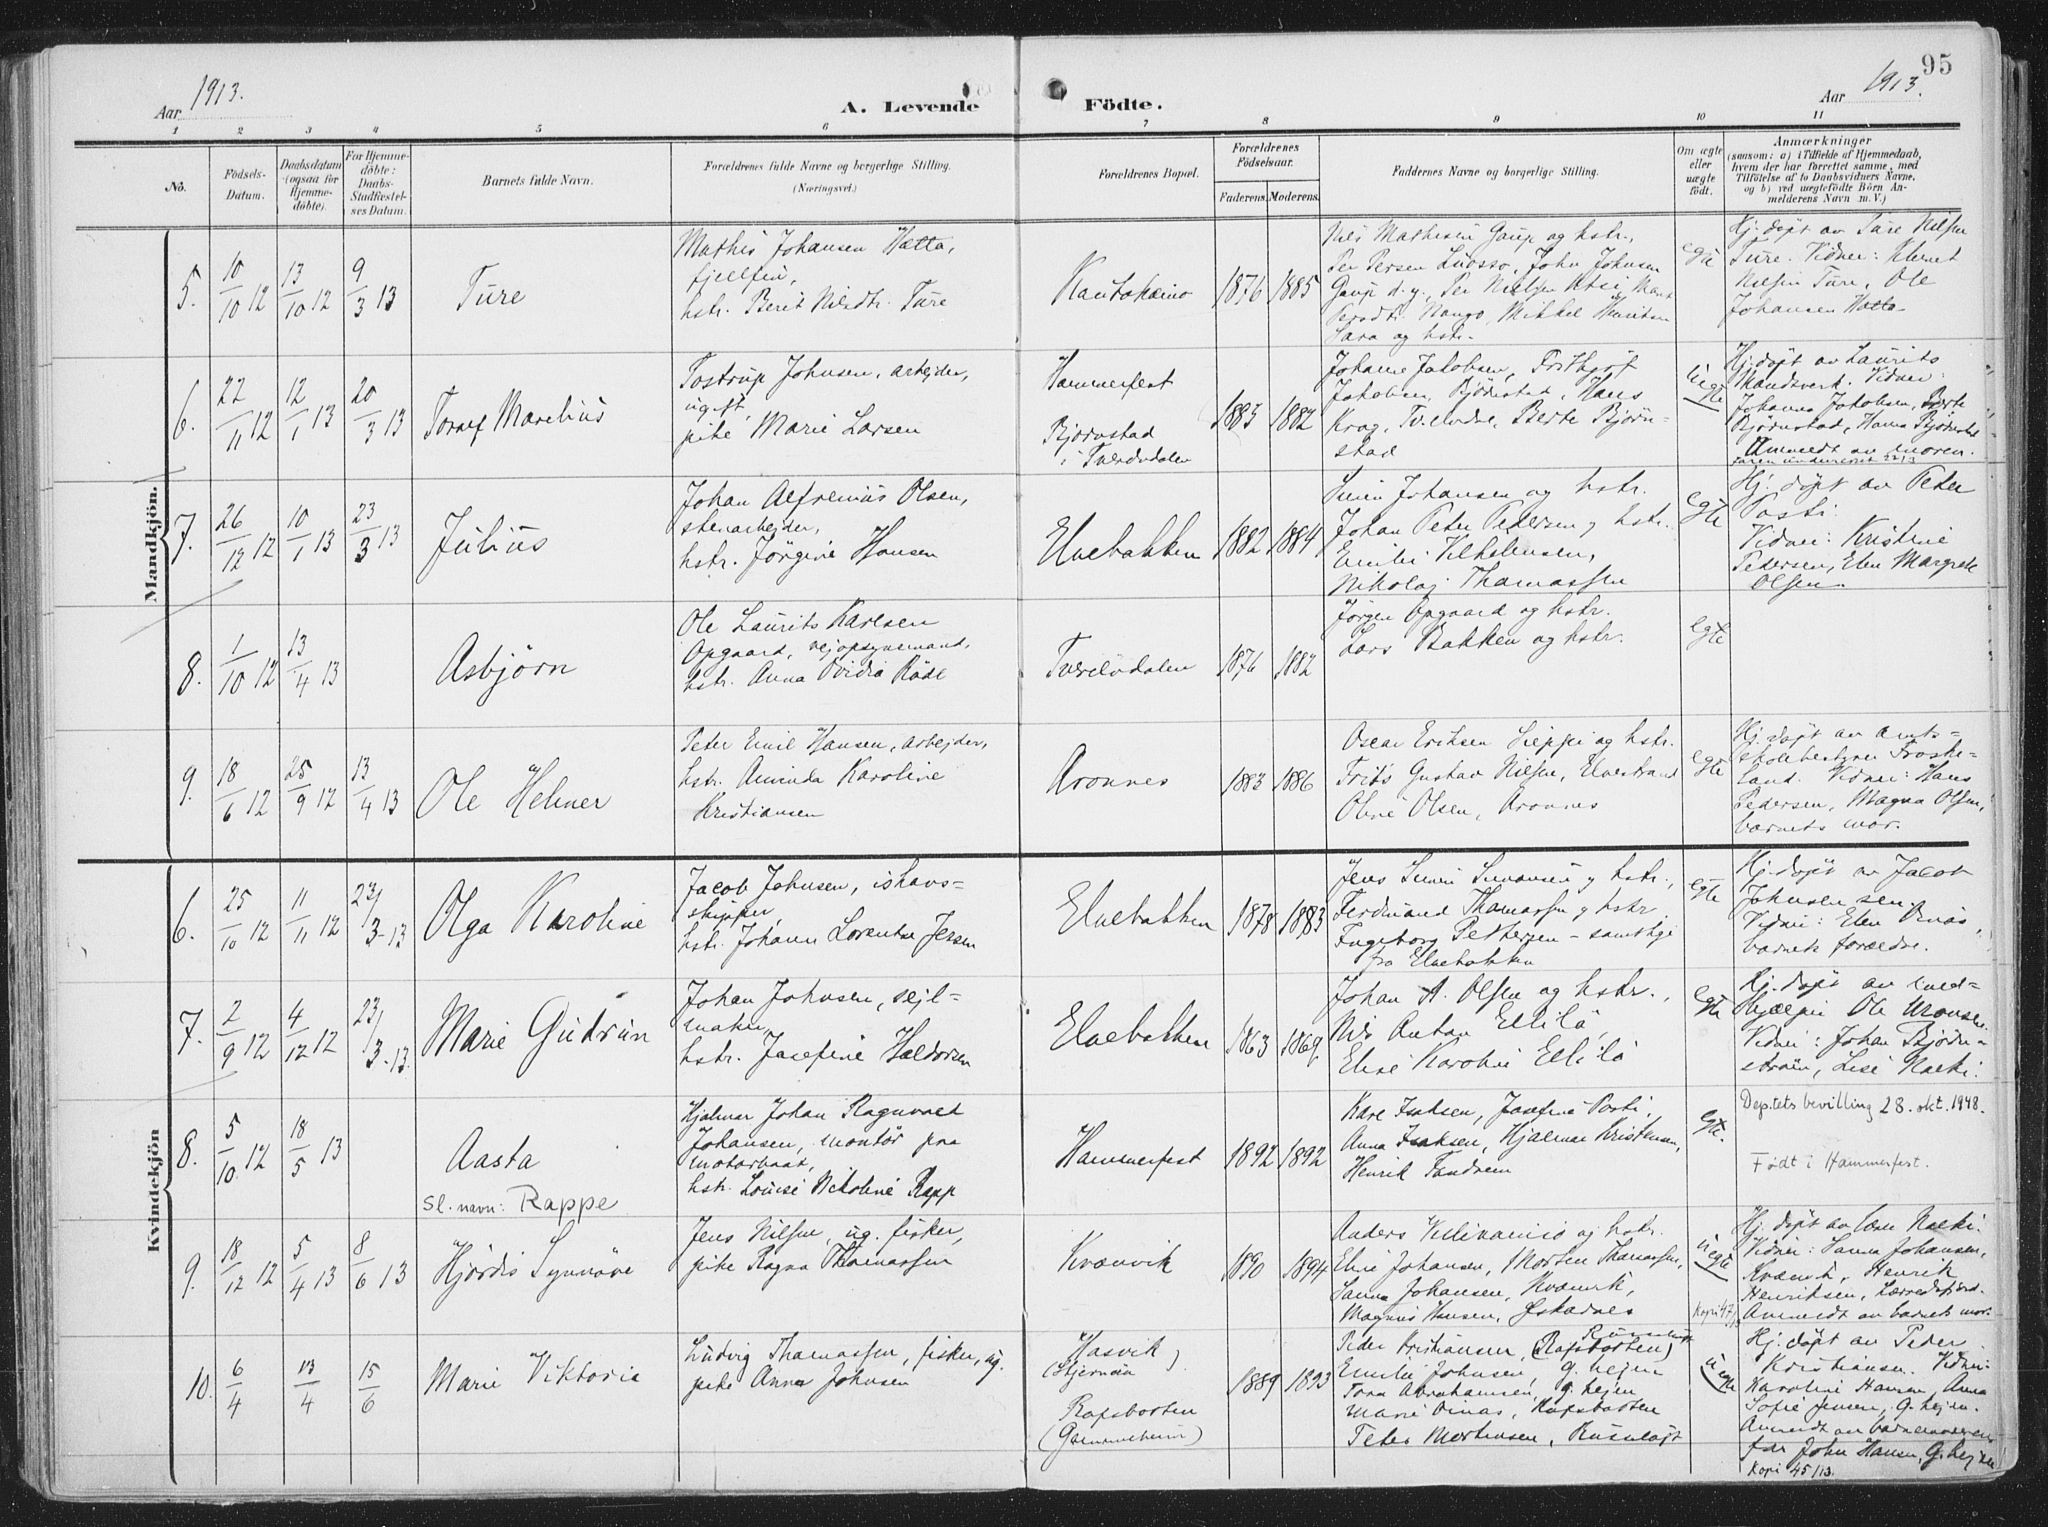 95
Aar 1913.
A. Levende Födte.
Aar 1913.
1 2 3 4 5 6 7 8 9 10 11
No.
Födsels-
Datum.
Daabsdatum
(ogsaa for
Hjemme-
döbte).
For Hjemme-
döbte:
Daabs-
Stadfæstel-
ses Datum.
Barnets fulde Navn.
Forældrenes fulde Navne og borgerlige Stilling.
(Næringsvei.)
Forældrenes Bopæl.
Forældrenes
Födselsaar.
Faderens. Moderens.
Faddernes Navne og borgerlige Stilling.
Om ægte
eller
uægte
födt.
Anmærkninger
(saasom: a) i Tilfælde af Hjemmedaab,
hvem der har forrettet samme, med
Tilföielse af to Daabsvidners Navne,
og b) ved uægtefödte Börn An-
melderens Navn m. V.)
Mandkjön.
5.
10/10 12
13/10 12
9/3 13
Ture
Mathis Johansen Hætta,
fjellfin,
hstr. Berit Nilsdtr. Ture
Kautokeino
1876 1885
Nils Mathisen Gaup og hstr.,
Per Persen Luosso, John Johnsen
Gaup d. y., Per Nielsen
Nango, Mikkel Henriksen
Sara og hstr.
egte
Hj. døpt av Ture Nilsen
Ture. Vidner: Klemet
Nilsen Ture, Ole
Johansen Hætta
6.
22/11 12
12/1 13
20/3 13
Toralf Marelius
Tostrup Johnsen, arbejder,
ugift,
pike Marie Larsen
Hammerfest
Bjørnstad
i Tverelvdalen
1885 1882
Johanne Jakobsen, Frithjof
Jakobsen, Bjørnstad, Hans
Krog, Tverelvdal, Berte Bjørn-
stad
uegte
Hj. døpt av Laurits
Mandsverk. Vidner:
Johanne Jakobsen, Berte
Bjørnstad, Hanna Bjørnstad
Anmeldt av moren.
7.
26/12 12
10/1 13
23/3 13
Julius
Johan Alfrenius Olsen,
stenarbejder,
hstr. Jørgine Hansen
Elvebakken
1882 1884
Simen Johansen og hstr.
Johan Peter Pedersen og hstr.
Emilie Vilhelmsen,
Nikolaj Thomassen
egte
Hj. døpt av Peter
Posti.
Vidner: Kristine
Pedersen, Elen Margrete
Olsen.
8.
1/10 12
13/4 13
Asbjørn
Ole Laurits Karlsen
Opgaard, vejopsynsmand,
hstr. Anna Ovidia Røde
Tverelvdalen
1876 1882
Jørgen Opgaard og hstr.
Lars Bakken og hstr.
egte
9.
18/6 12
25/9 12
13/4 13
Ole Helmer
Peter Emil Hansen, arbejder,
hstr. Aminda Karoline
Kristiansen
Aronnes
1883 1886
Oscar Eriksen Sieppi og hstr.
Frits Gustav Nilsen, Elvestrand
Oline Olsen, Aronnes
egte
Hj. døpt av amts-
skolebestyrer Froske-
land. Vidner: Hans
Pedersen, Magna Olsen,
barnets mor.
Kvindekjön
6.
25/10 12
11/11 12
23/3-13
Olga Karoline
Jacob Johnsen, ishavs-
skipper,
hstr. Johanne Lorentse Jensen
Elvebakken
1878 1883
Jens Simen Simonsen og hstr.,
Ferdinand Thomassen og hstr.
Ingeborg Pettersen - samtlige
fra Elvebakken
egte
Hj. døpt av Jacob
Johnsen sen.
Vidner: Elen Dinas,
barnets forældre.
7.
2/9 12
4/12 12
23/3-13.
Marie Gudrun
Johan Johnsen, sejl-
maker,
hstr. Josefine Haldorsen
Elvebakken
1863 1869
Johan A. Olsen og hstr.,
Nils Anton Ellilä,
Elise Karoline Ellilä
egte
Hj. døpt av med-
hjælper Ole Aronsen.
Vidner: Johan Bjørn-
strøm, Lise Nælki.
8.
5/10 12
18/5 13
Aasta
Sl. navn: Rappe
Hjalmar Johan Ragnvald
Johansen, montør paa
motorbaat,
hstr. Louise Nikoline Rapp
Hammerfest
1892 1892
Kare Isaksen, Josefine Posti,
Anna Isaksen, Hjalmar Kristensen,
Henrik Tandrem
egte.
Dep.tets bevilling 28. okt. 1948.
Født i Hammerfest.
9.
18/12 12
5/4 13
8/6 13
Hjørdis Synnøve
Jens Nilsen, ug. fisker,
pike Ragna Thomassen
Kvænvik
1890 1894
Anders Vilivainio og hstr.
Elise Johansen, Morten Thomassen,
Sanna Johansen, Kvænvik,
Magnus Hansen, Øskarnes
uegte
Kopi 47/13
Hj. døpt av Lars Nælki.
Vidner: Sanna Johansen,
Kvænvik, Henrik
Henriksen, Lærredsfjord.
Anmeldt av barnets mor.
10.
6/4
13/4
15/6
Marie Viktoria
Ludvig Thomassen, fisker, ug.
pike Anna Johnsen
Hasvik
(Stjernøn)
Rafsbotten
(Gammelheim)
1889 1893
Peder Kristiansen, (Rafsbotten) Russeluft
Emilie Johnsen, G. hejm
Tora Abrahamsen, G. hejm
Marie Dinas, Rafsbotten
Peter Mortensen, Russeluft
uegte
Hj. døpt av Peder
Kristiansen. Vidner:
Karoline Hansen, Anna
Sofie Jensen, G. hejm.
Anmeldt av barnemoderens
far John Hansen, G. hejm
Kopi 45/13.